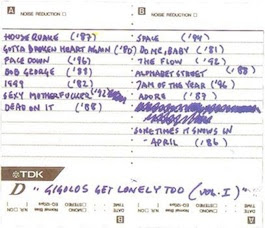 A NOISE REDUCTION
HOUSEQUAKE ('87)
GOTTA BROKEN HEART AGAIN ('80)
FACE DOWN ('96)
BOB GEORGE ('88)
1999 ('82)
SEXY MOTHERFUCKER ('92)
DEAD ON IT ('88)
B NOISE REDUCTION
SPACE ('94)
DO ME, BABY ('81)
THE FLOW ('92)
ALPHABET STREET ('88)
JAM OF THE YEAR ('96)
ADORE ('87)
SOMETIMES IT SNOWS IN
APRIL ('86)
TDK
D "GIGOLOS GET LONELY TOO (VOL. I)"
A
B